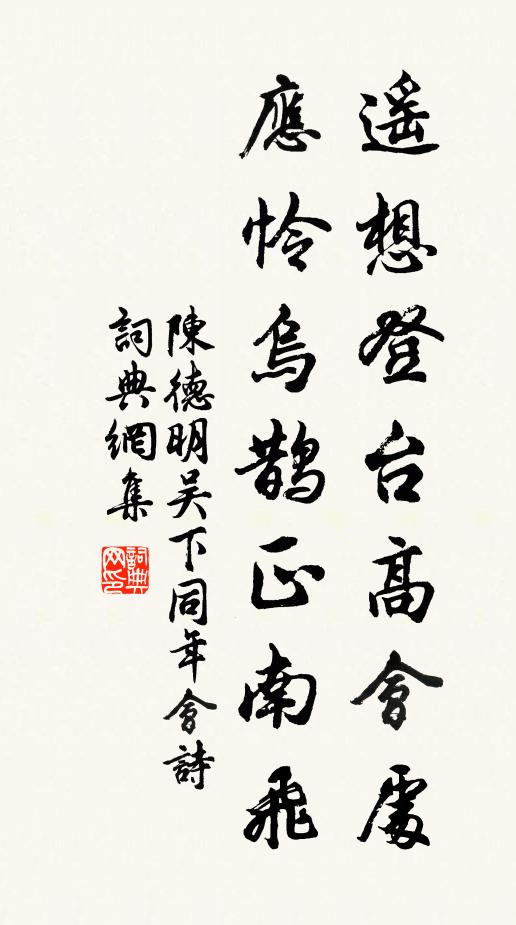 遥想登台高會處
應怜烏鵲正南飛
陳德明吴下同年會詩
詞典網集
詞典网印